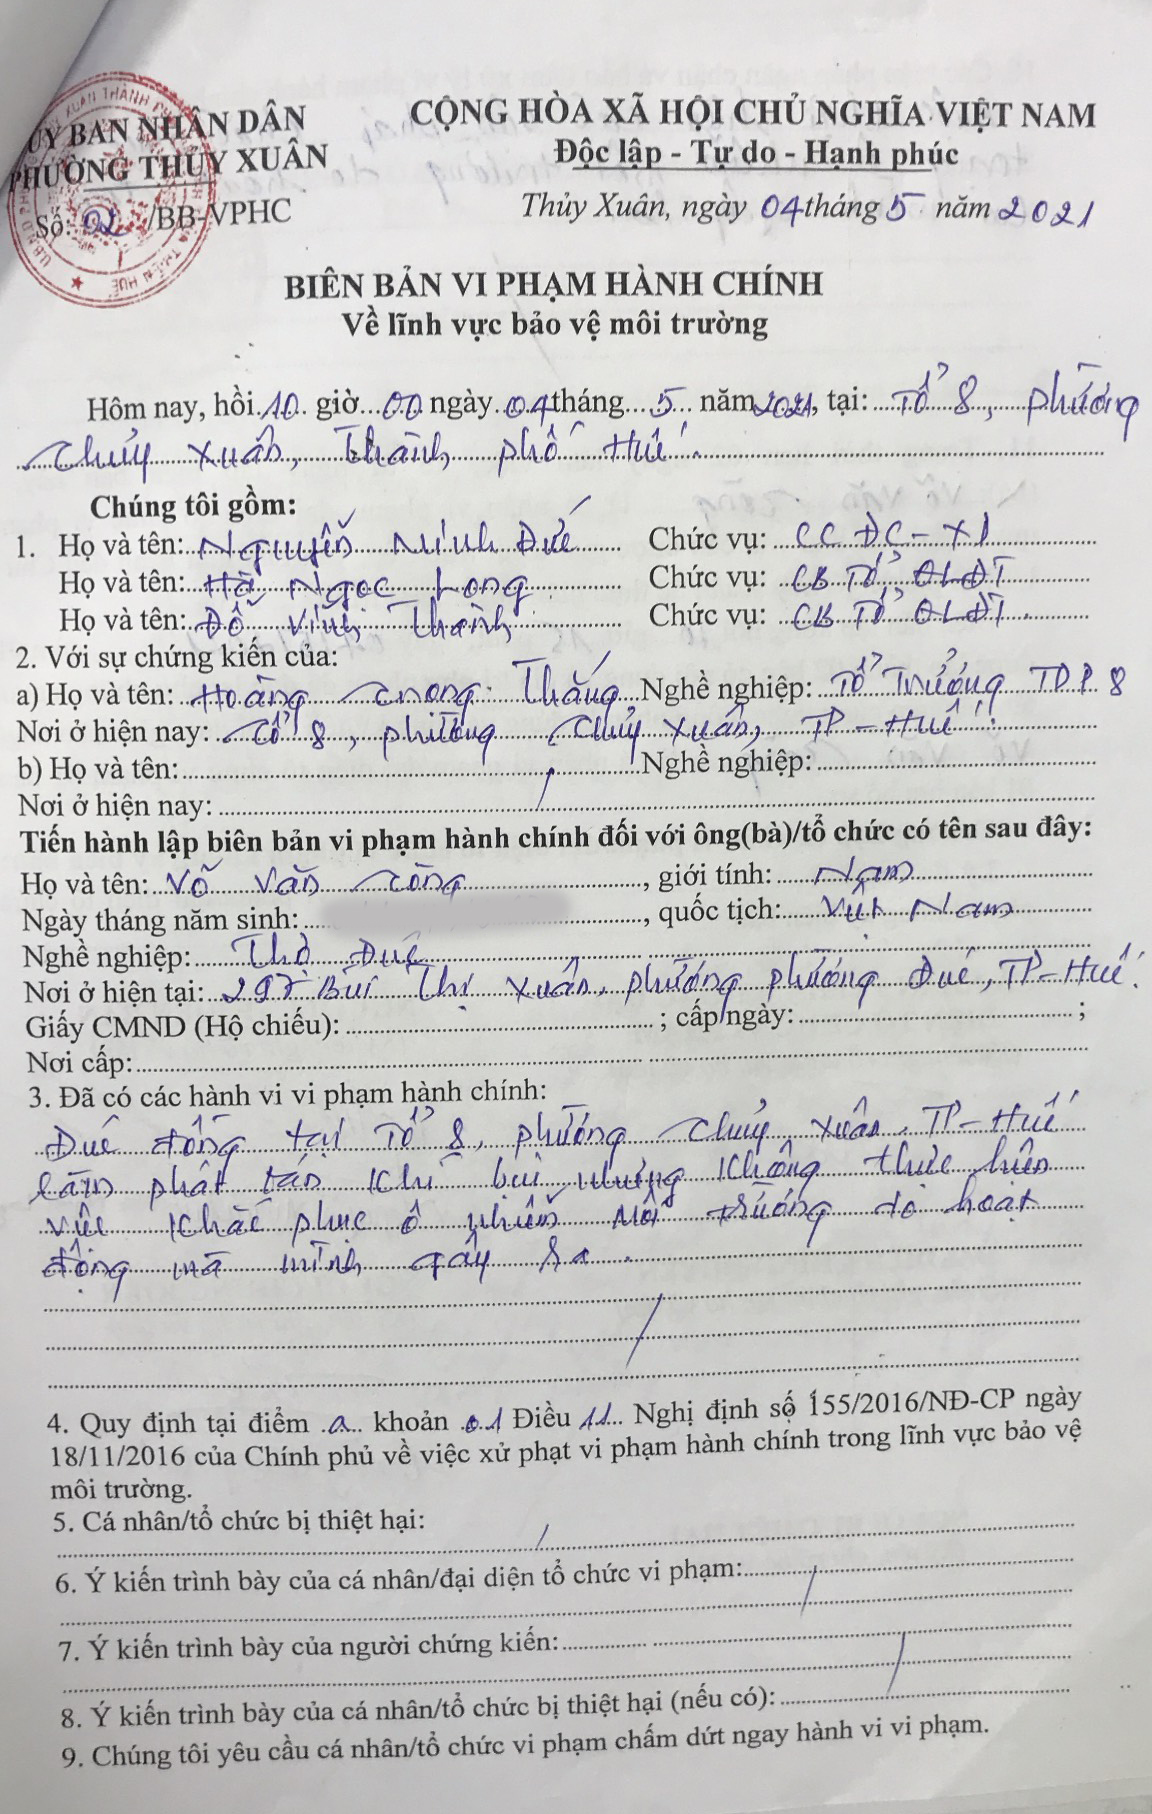 ỦY BAN NHÂN DÂN
PHƯỜNG THỦY XUÂN
Số: 02 /BB-VPHC
CỘNG HÒA XÃ HỘI CHỦ NGHĨA VIỆT NAM
Độc lập - Tự do - Hạnh phúc
Thủy Xuân, ngày 04 tháng 5 năm 2021
BIÊN BẢN VI PHẠM HÀNH CHÍNH
Về lĩnh vực bảo vệ môi trường
Hôm nay, hồi 10 giờ 00 ngày 04 tháng 5 năm 2021, tại: Tổ 8, phường
Thủy Xuân, Thành phố Huế.
Chúng tôi gồm:
1. Họ và tên: Nguyễn Minh Đức Chức vụ: CC ĐC - XD
Họ và tên: Hà Ngọc Long Chức vụ: CB Tổ QLĐT
Họ và tên: Đỗ Vĩnh Thành Chức vụ: CB Tổ QLĐT.
2. Với sự chứng kiến của:
a) Họ và tên: Hoàng Trọng Thắng Nghề nghiệp: Tổ Trưởng TDP 8
Nơi ở hiện nay: Tổ 8, phường Thủy Xuân, TP-Huế
b) Họ và tên: Nghề nghiệp:
Nơi ở hiện nay:
Tiến hành lập biên bản vi phạm hành chính đối với ông(bà)/tổ chức có tên sau đây:
Họ và tên: Võ Văn , giới tính: Nam
Ngày tháng năm sinh: , quốc tịch: Việt Nam
Nghề nghiệp: Thợ Đúc
Nơi ở hiện tại: Bùi Thị Xuân, phường phường Đúc, TP-Huế.
Giấy CMND (Hộ chiếu): ; cấp ngày: ;
Nơi cấp:
3. Đã có các hành vi vi phạm hành chính:
Đúc đồng tại Tổ 8, phường Thủy Xuân, TP-Huế
làm phát tán khí bụi nhưng không thực hiện
việc khắc phục ô nhiễm môi trường do hoạt
động mà mình gây ra.
4. Quy định tại điểm a khoản 01 Điều 11 Nghị định số 155/2016/NĐ-CP ngày
18/11/2016 của Chính phủ về việc xử phạt vi phạm hành chính trong lĩnh vực bảo vệ
môi trường.
5. Cá nhân/tổ chức bị thiệt hại:
6. Ý kiến trình bày của cá nhân/đại diện tổ chức vi phạm:
7. Ý kiến trình bày của người chứng kiến:
8. Ý kiến trình bày của cá nhân/tổ chức bị thiệt hại (nếu có):
9. Chúng tôi yêu cầu cá nhân/tổ chức vi phạm chấm dứt ngay hành vi vi phạm.